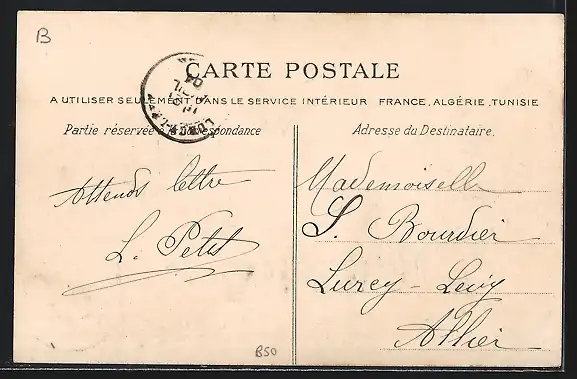 B
CARTE POSTALE
A UTILISER SEULEMENT DANS LE SERVICE INTÉRIEUR FRANCE, ALGÉRIE, TUNISIE
Partie réservée à la correspondance
Adresse du Destinataire.
Attends lettre
L. Petit
Mademoiselle
S. Bourdier
Lurcy-Levy
Allier
B50